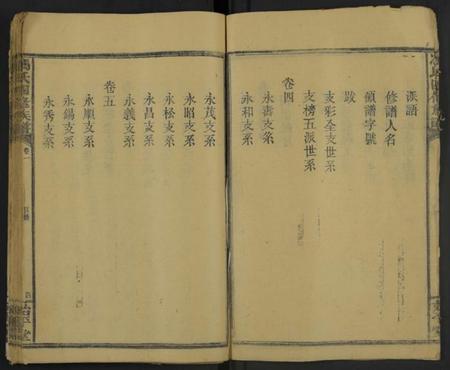 派語
修譜人名
領譜字號
跋
支彩全支世系
支榜五派世系
卷四
永壽支系
永和支系
永茂支系
永昭支系
永松支系
永昌支系
永義支系
卷五
永順支系
永錫支系
永秀支系